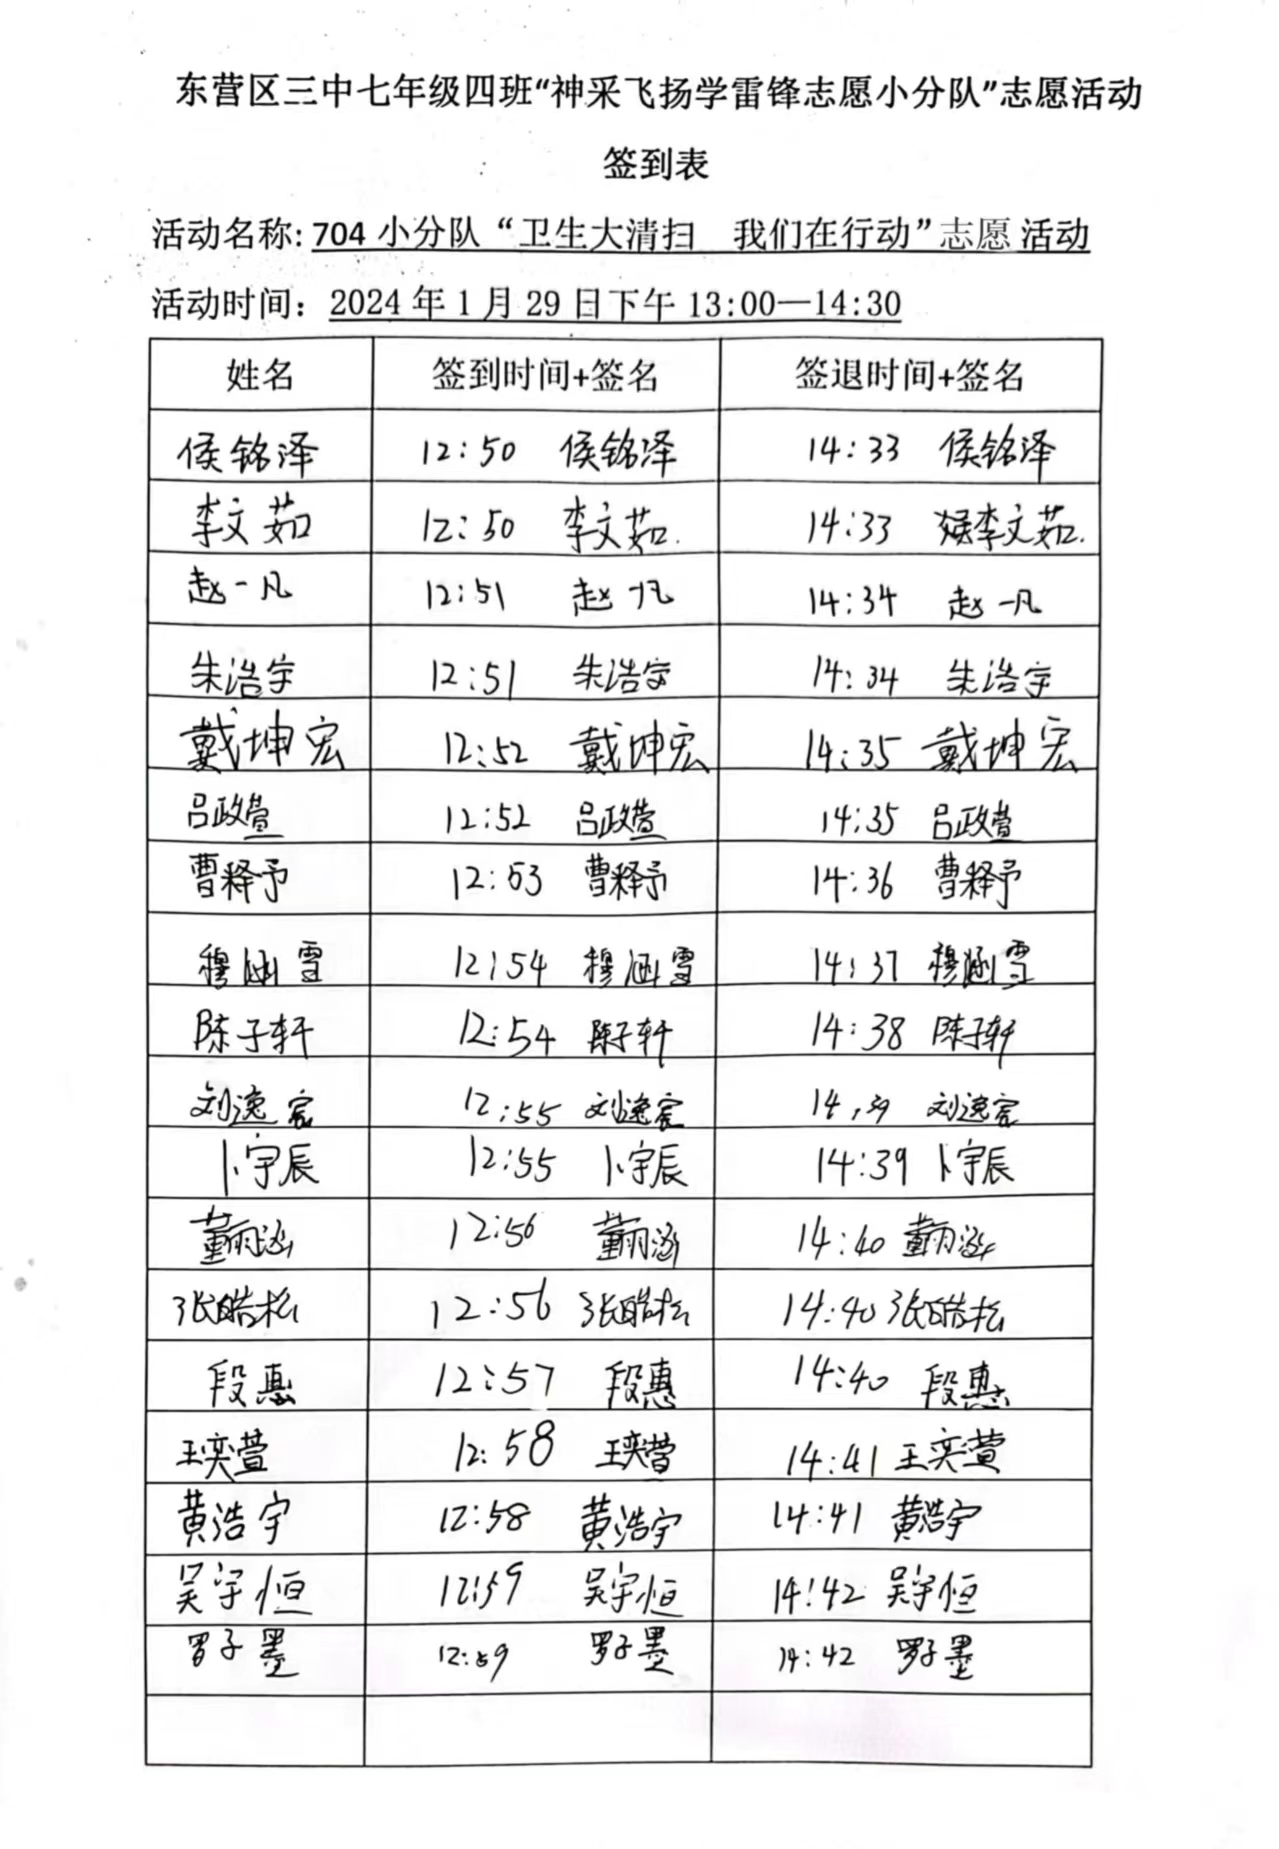 东营区三中七年级四班“神采飞扬学雷锋志愿小分队”志愿活动
签到表
活动名称: 704 小分队 “卫生大清扫 我们在行动” 志愿 活动
活动时间： 2024 年 1 月 29 日下午 13:00—14:30
姓名 签到时间+签名 签退时间+签名
侯铭泽 12:50 侯铭泽 14:33 侯铭泽
李文茹 12:50 李文茹. 14:33 李文茹.
赵一凡 12:51 赵一凡 14:34 赵一凡
朱浩宇 12:51 朱浩宇 14:34 朱浩宇
戴坤宏 12:52 戴坤宏 14:35 戴坤宏
吕政萱 12:52 吕政萱 14:35 吕政萱
曹释予 12:53 曹释予 14:36 曹释予
穆涵雪 12:54 穆涵雪 14:37 穆涵雪
陈子轩 12:54 陈子轩 14:38 陈子轩
刘逸宸 12:55 刘逸宸 14:39 刘逸宸
卜宇辰 12:55 卜宇辰 14:39 卜宇辰
董雨涵 12:56 董雨涵 14:40 董雨涵
张皓松 12:56 张皓松 14:40 张皓松
段惠 12:57 段惠 14:40 段惠
王奕萱 12:58 王奕萱 14:41 王奕萱
黄浩宇 12:58 黄浩宇 14:41 黄浩宇
吴宇恒 12:59 吴宇恒 14:42 吴宇恒
罗子墨 12:59 罗子墨 14:42 罗子墨